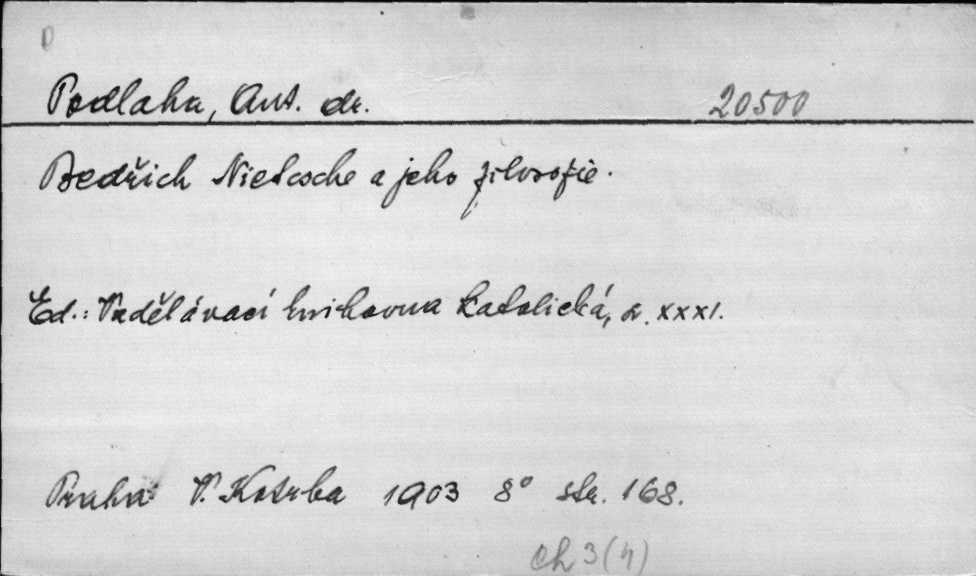 D
Podlaha, Ant. dr. 20500
Bedřich Nietzsche a jeho filosofie.
Ed.: Vzdělávací knihovna katolická, sv. XXXI.
Praha V. Kotrba 1903 8° str. 168.
Ch 3 (4)